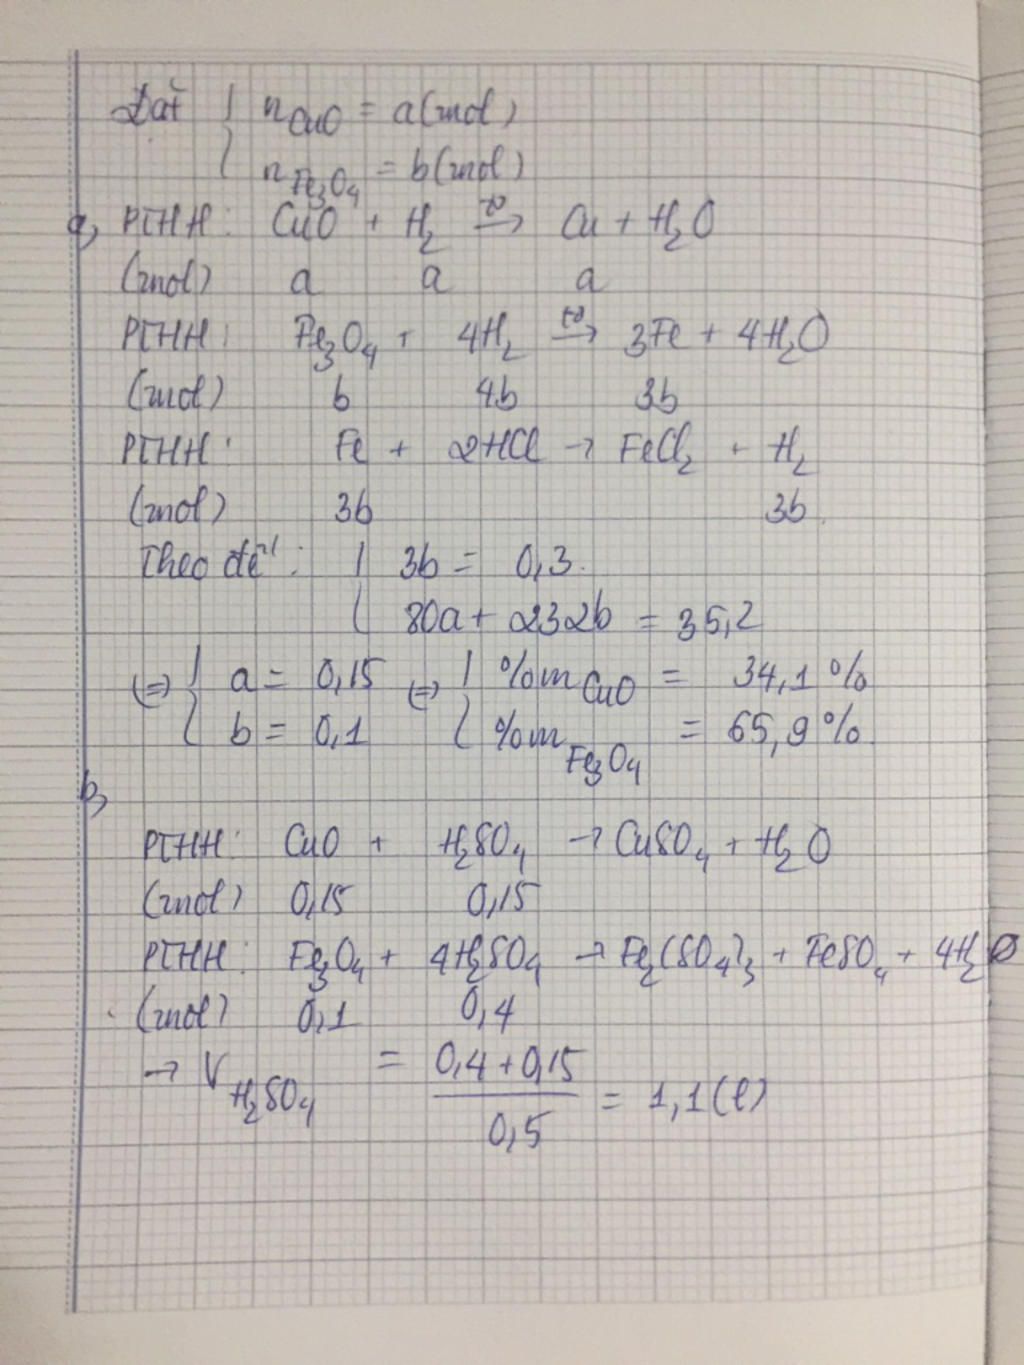 Đặt { n CuO = a(mol)
n Fe3O4 = b(mol)
a, PTHH: CuO + H2 t°→ Cu + H2O
(mol) a a a
PTHH: Fe3O4 + 4H2 t°→ 3Fe + 4H2O
(mol) b 4b 3b
PTHH: Fe + 2HCl → FeCl2 + H2
(mol) 3b 3b
Theo đề: { 3b = 0,3.
80a + 232b = 35,2
(=) { a = 0,15 (=) { %m CuO = 34,1%
b = 0,1 %m Fe3O4 = 65,9%
b,
PTHH: CuO + H2SO4 → CuSO4 + H2O
(mol) 0,15 0,15
PTHH: Fe3O4 + 4H2SO4 → Fe2(SO4)3 + FeSO4 + 4H2O
(mol) 0,1 0,4
→ V H2SO4 = (0,4 + 0,15)/0,5 = 1,1(l)